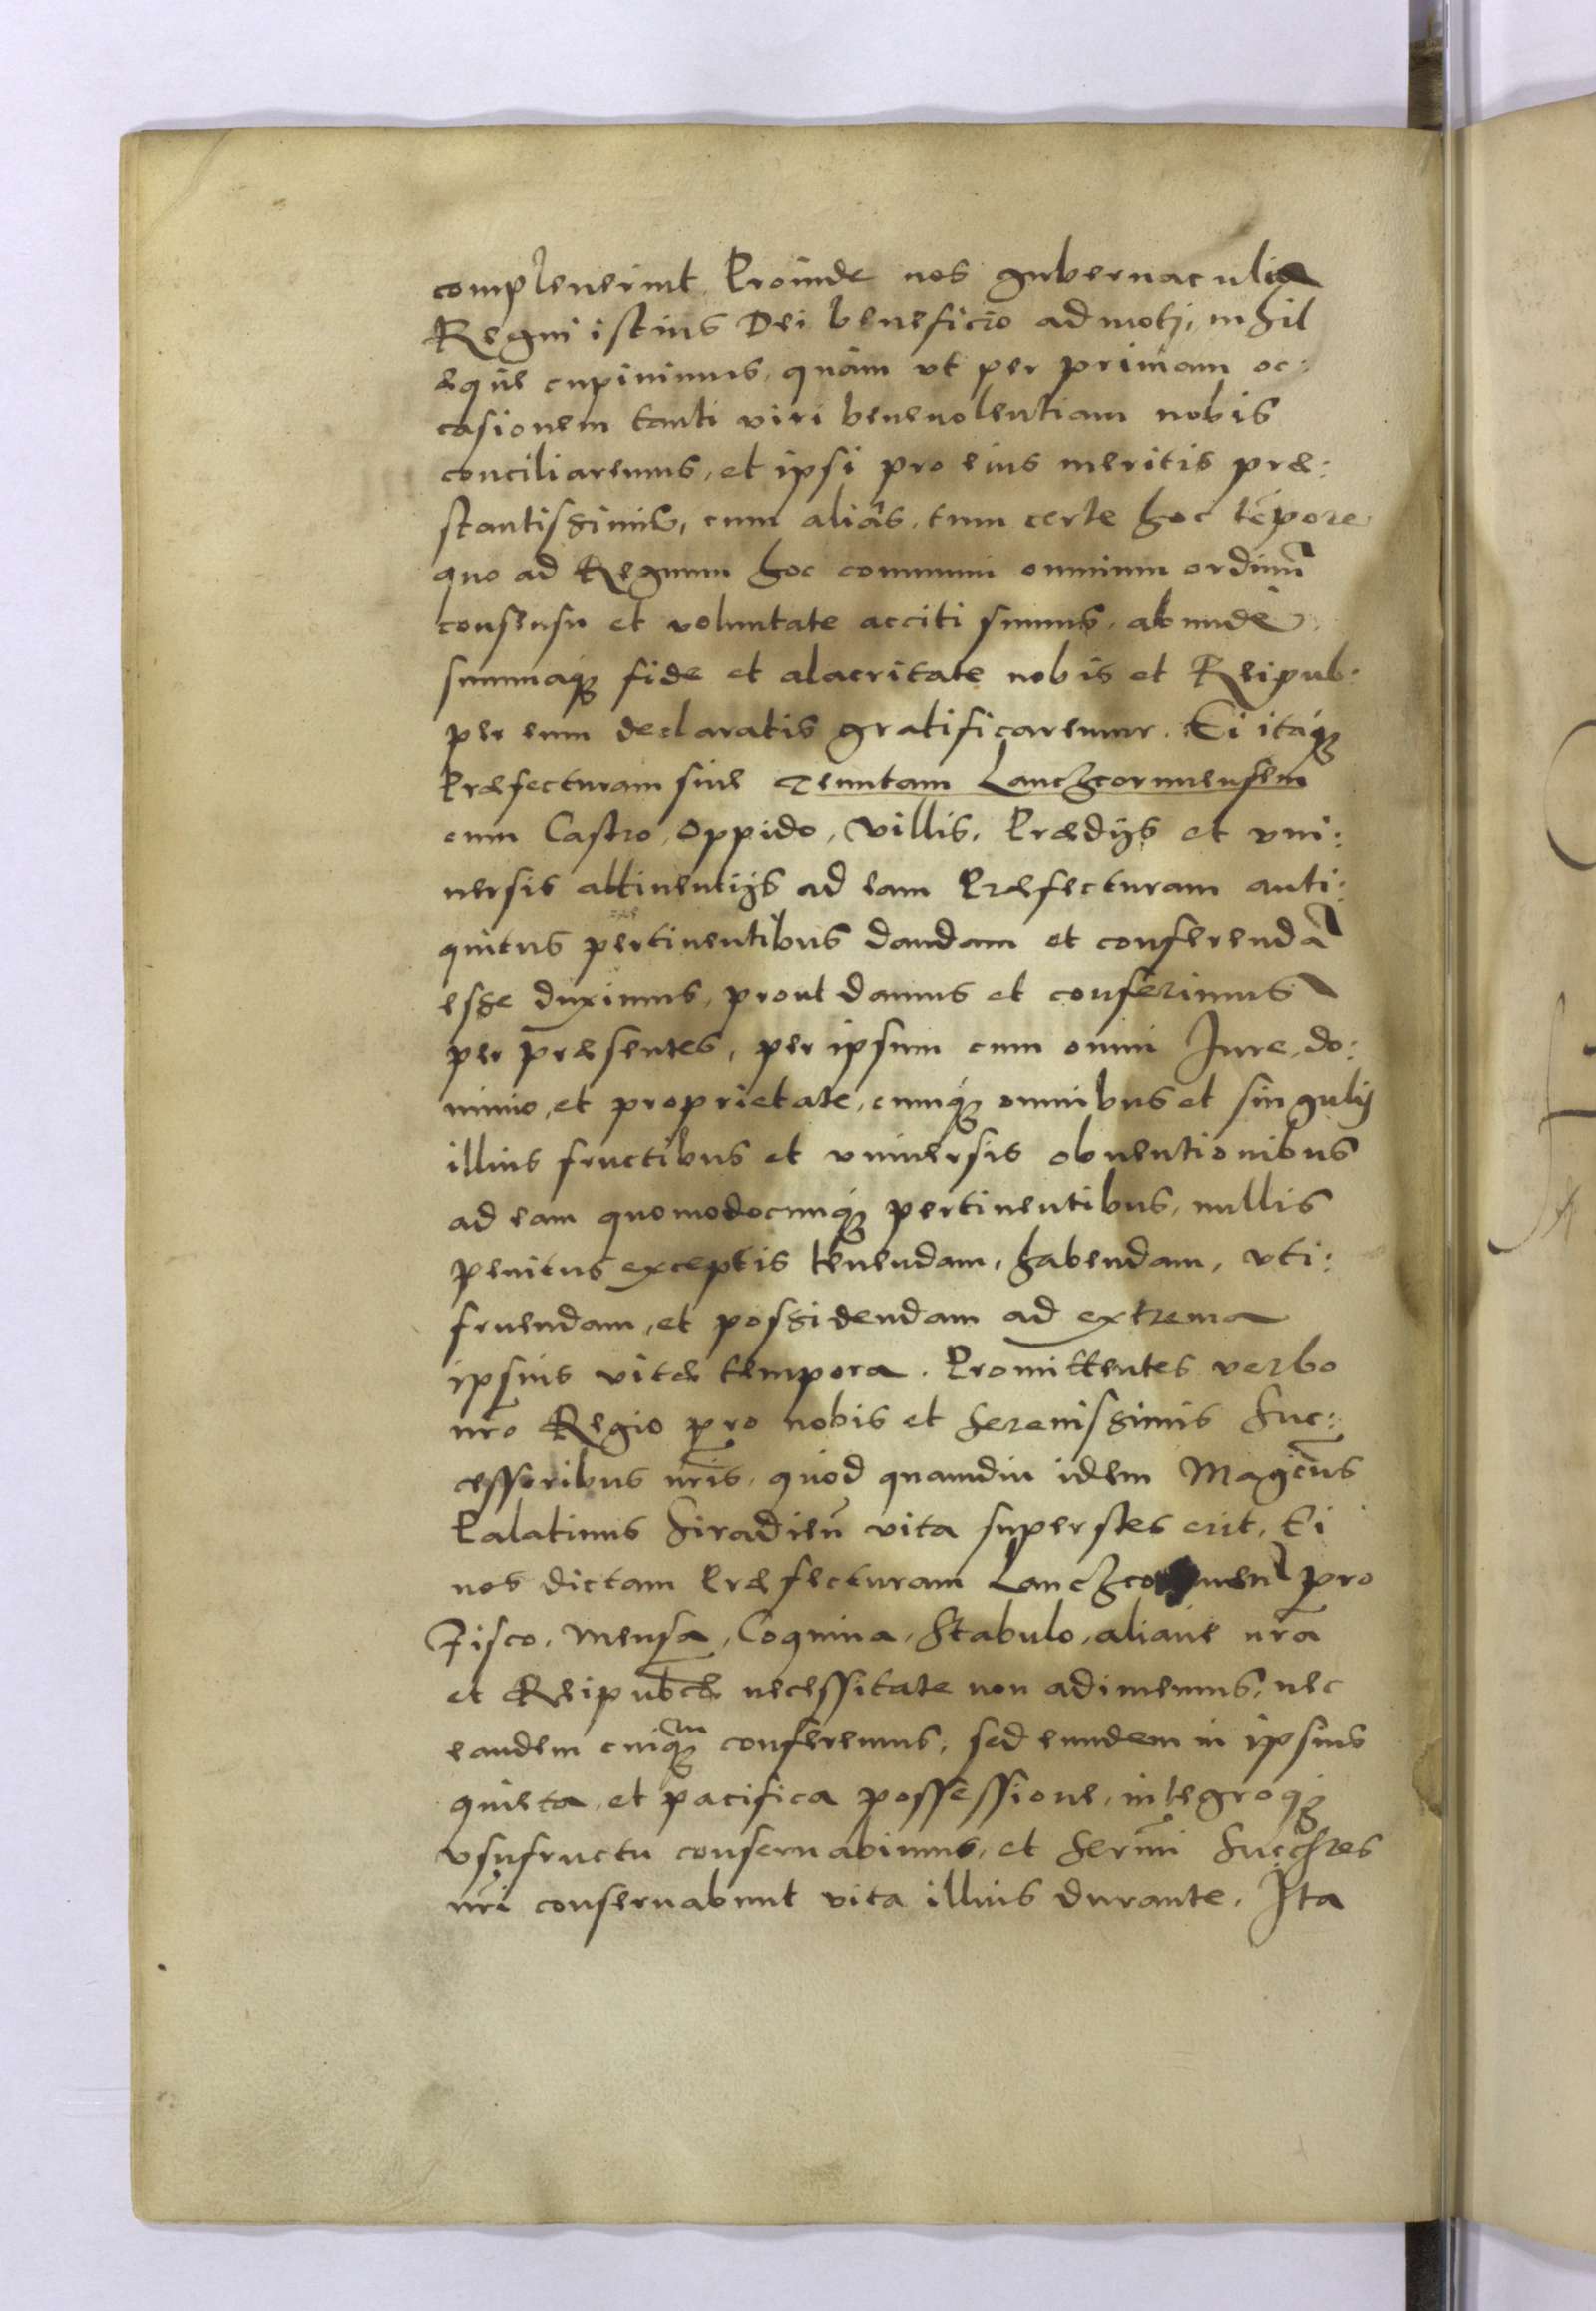 compleuerint Proinde nos gubernaculis
Regni istius Dei beneficio admoti, nihil
æque cupiuimus, quàm vt per primam oc:
casionem tanti viri beneuolentiam nobis
conciliaremus, et ipsi pro eius meritis præ:
stantissimis, cum aliàs, tum certe hoc tẽpore
quo ad Regnum hoc communi omnium ordinũ
consensu et voluntate acciti sumus, abundè
summaq₃ fide et alacritate nobis et Reipub:
per eum declaratis gratificaremur. Ei itaq₃
Præfecturam siue Tenutam Lanczcorunensem
cum Castro, Oppido, Villis, Prædijs et vni:
uersis attinentijs ad eam Præfecturam anti:
quitus pertinentibus dandam et conferendã
esse duximus, prout damus et conferimus
per præsentes, per ipsum cum omni Jure, do:
minio, et proprietate, cumq₃ omnibus et singulis
illius fructibus et vniuersis obuentionibus
ad eam quomodocunq₃ pertinentibus, nullis
penitus exceptis tenendam, habendam, vti:
fruendam, et possidendam ad extrema
ipsius vitæ tempora. Promittentes verbo
nro Regio pro nobis et Serenissimis Suc:
cessoribus nris, quod quamdiu idem Magcus
Palatinus Siradien vita superstes erit, Ei
nos dictam Præfecturam pro
Fisco, Mensa, Coquina, Stabulo, aliaue nra
et Reipubcæ necessitate non adimemus, nec
eandem cuiqᵐ₃ conferemus, sed eundem in ipsius
quieta, et pacifica possessione, integroq₃
vsufructu conseruabimus, et Sermi Succres
nri conseruabunt vita illius durante. Ita